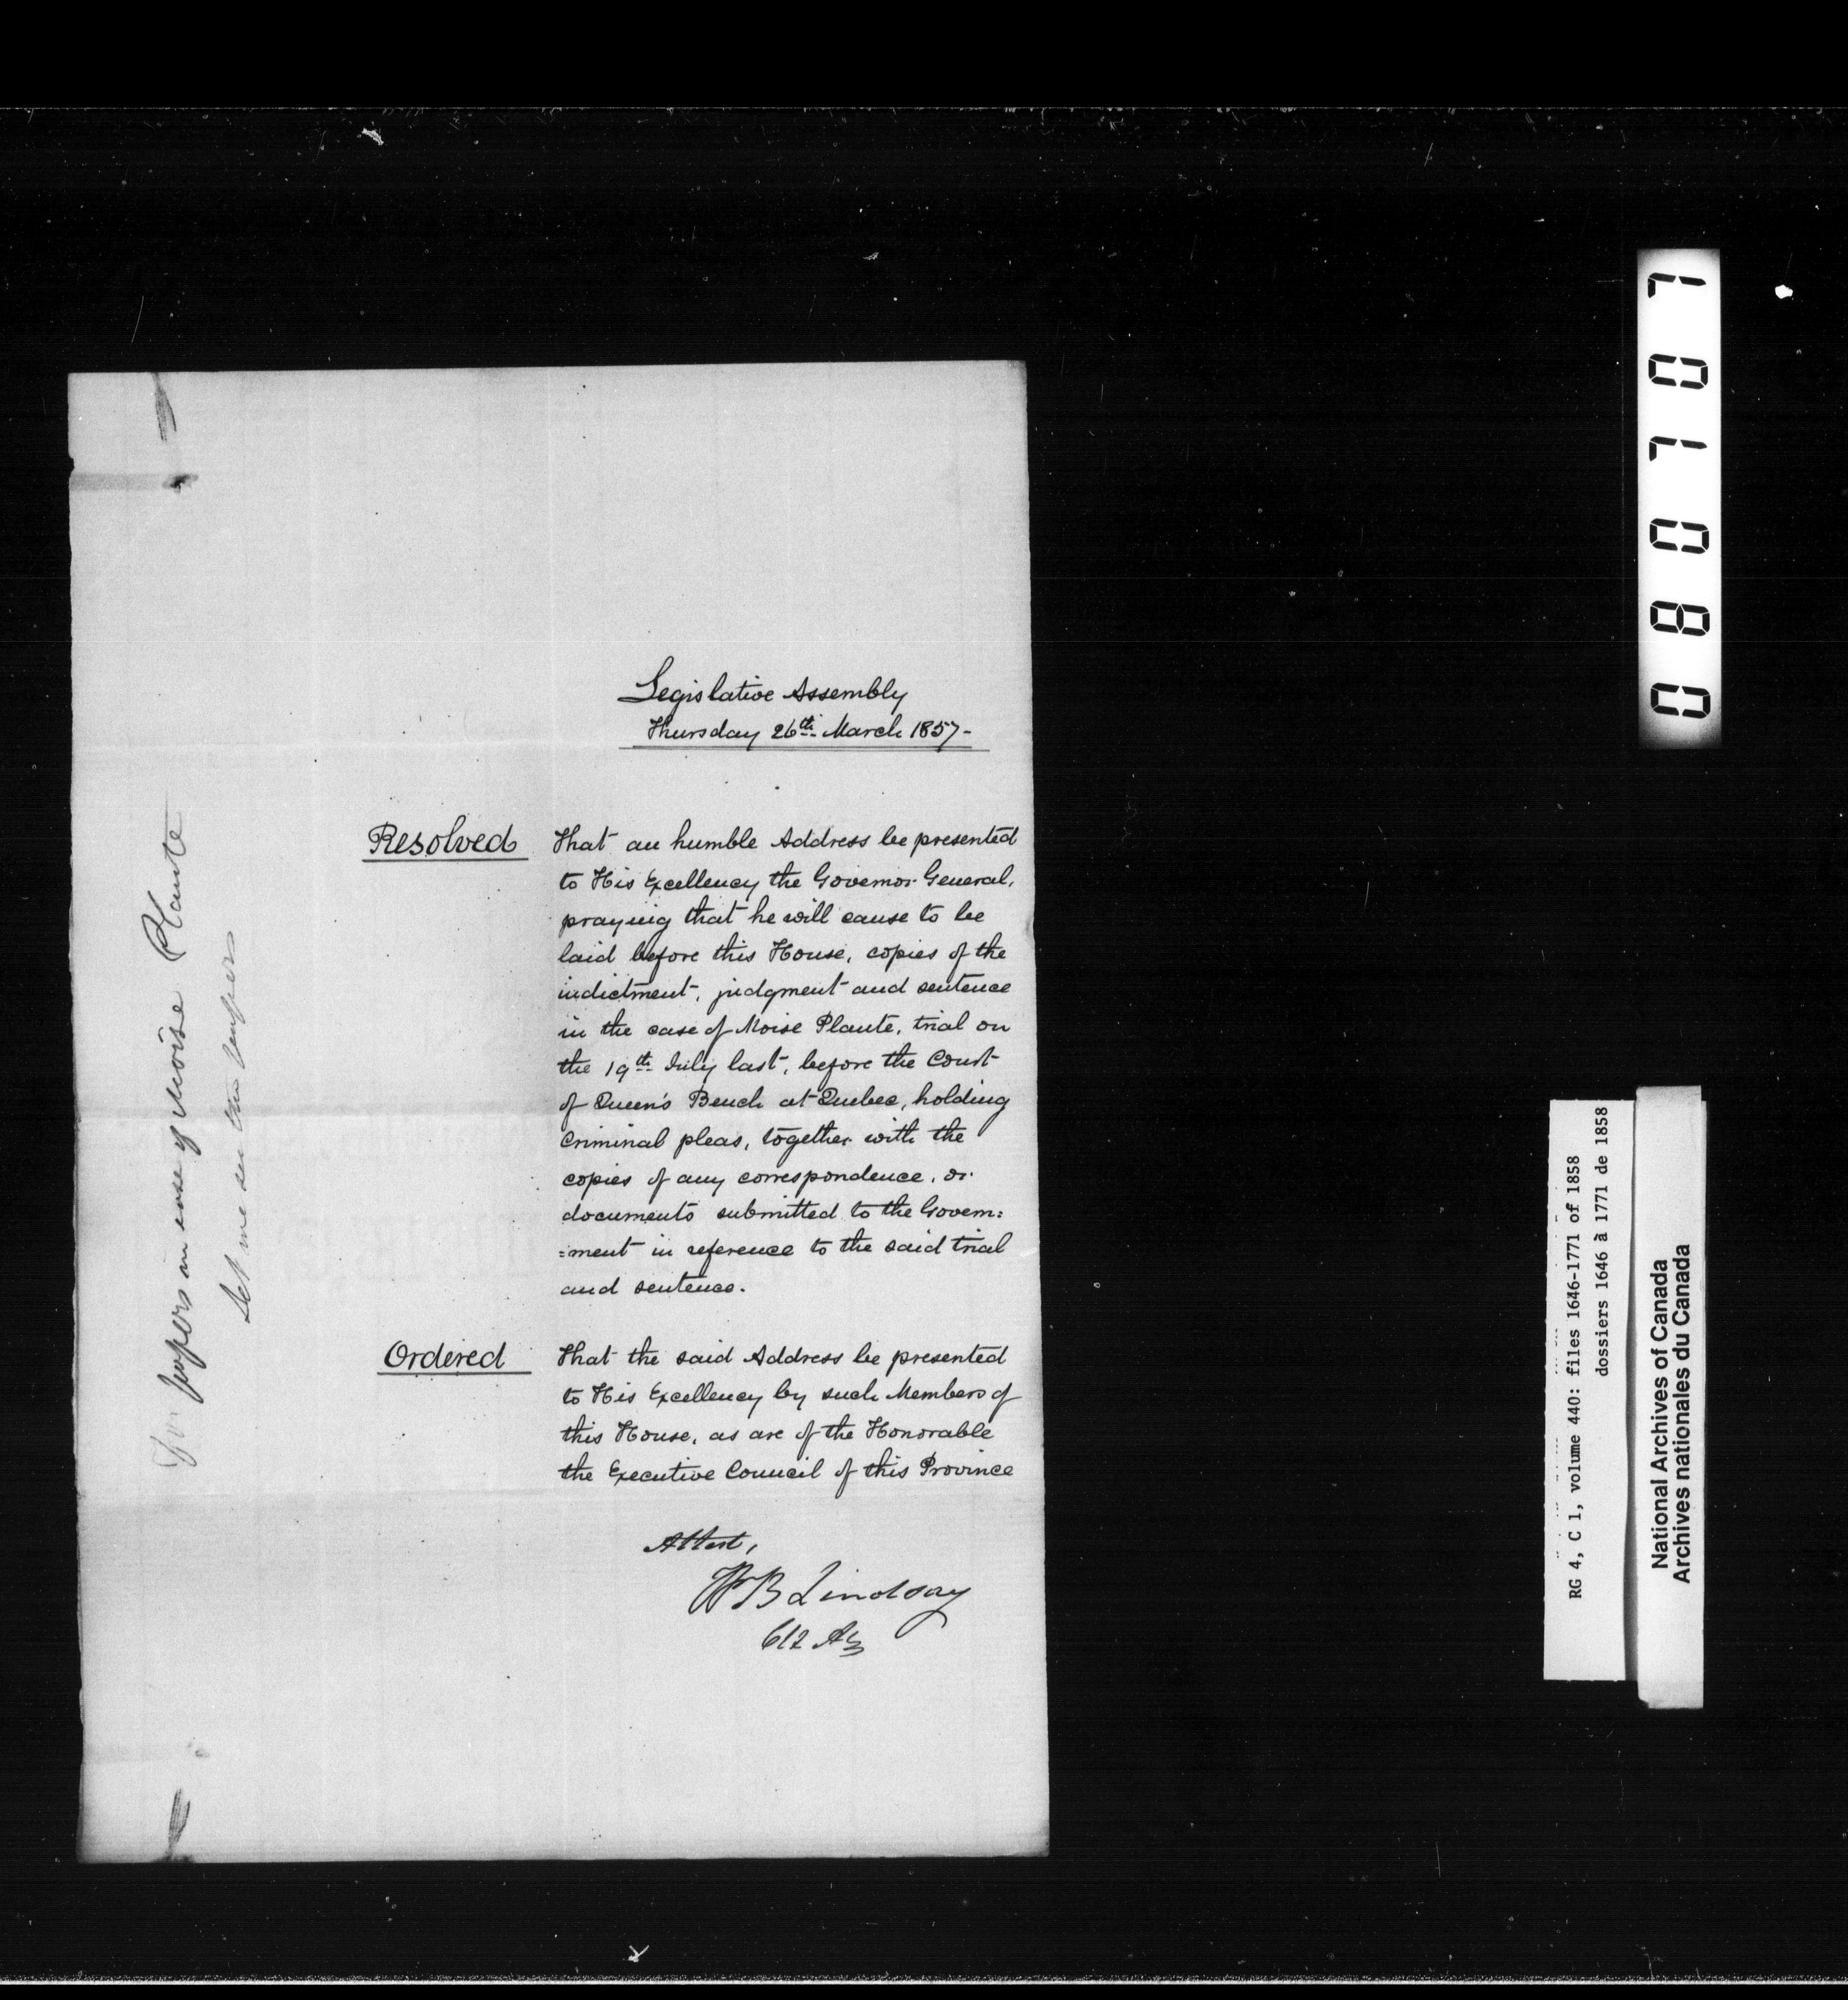 Legislative Assembly
Thursday 26th March 1857-
Resolved That an humble Address be presented
to His Excellency the Governor General,
praying that he will cause to be
laid before this House, copies of the
indictment, judgment and sentence
in the case of Moise Plante, trial on
the 19th July last, before the Court
of Queen's Bench at Quebec, holding
Criminal pleas, together with the
copies of any correspondence, or
documents submitted to the Govern=
=ment in reference to the said trial
and sentence.
Ordered That the said Address be presented
to His Excellency by such Members of
this House, as are of the Honorable
the Executive Council of this Province
Attest,
WB Lindsay
Clk Asy
papers in case of Moise Plante
Let me see the papers
080707
RG 4, C 1, volume 440: files 1646-1771 of 1858
dossiers 1646 à 1771 de 1858
National Archives of Canada
Archives nationales du Canada